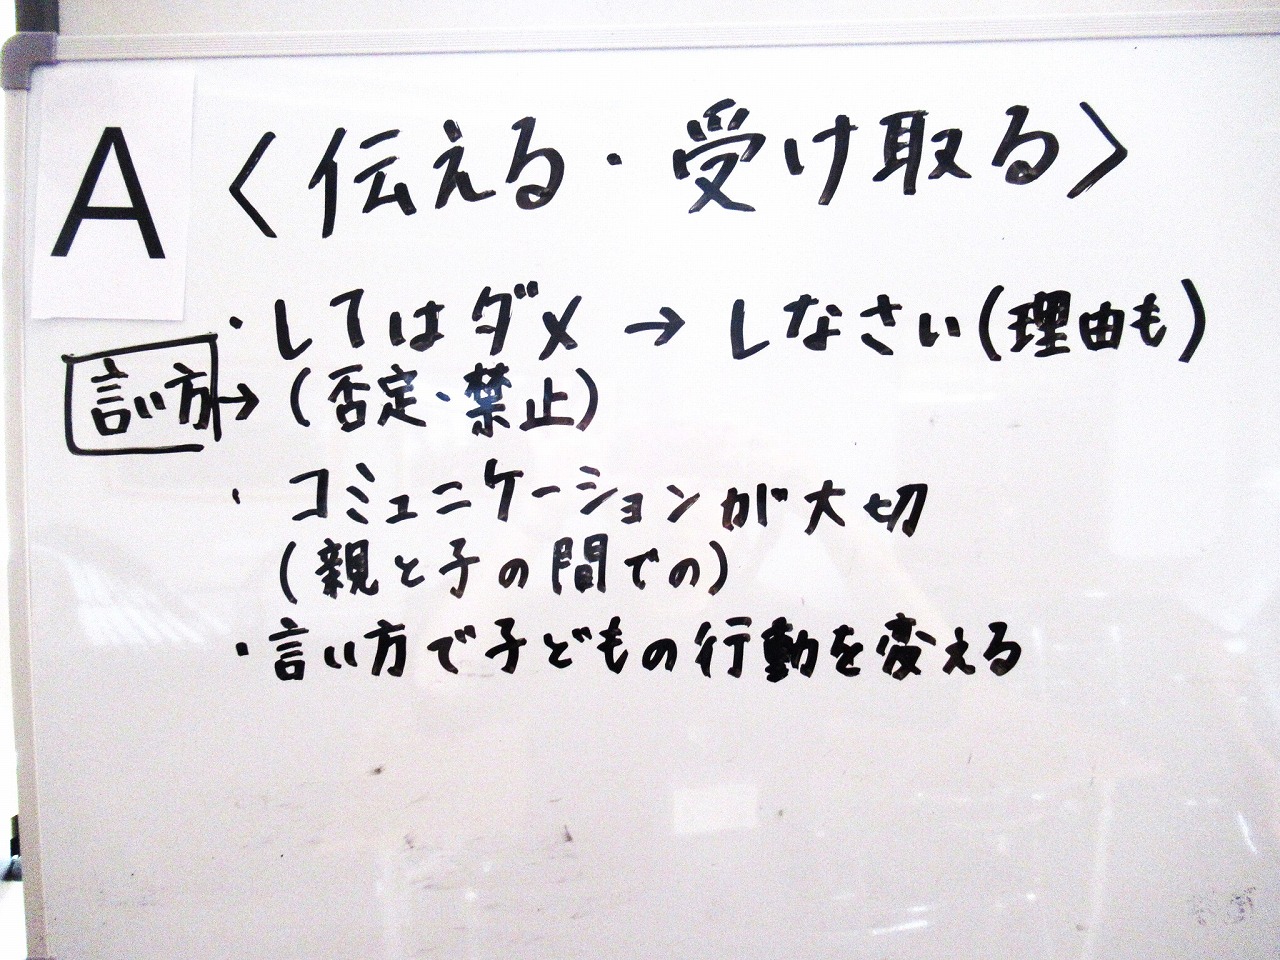 A 〈伝える・受け取る〉
・してはダメ → しなさい(理由も)
言い方→ (否定・禁止)
・コミュニケーションが大切
(親と子の間での)
・言い方で子どもの行動を変える